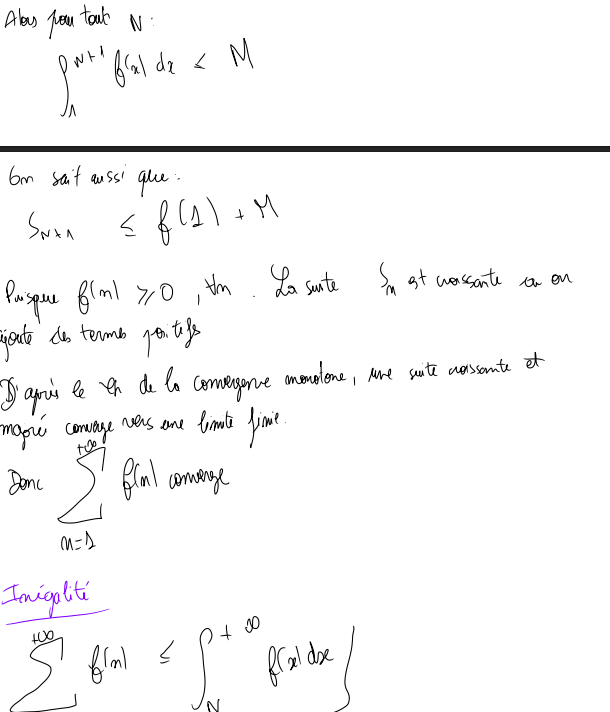 Alors pour tout N :
∫_1^{N+1} f(x) dx ≤ M
On sait aussi que :
S_{N+1} ≤ f(1) + M
Puisque f(n) ≥ 0, ∀n. La suite S_n est croissante car on
ajoute des termes positifs
D'après le th de la convergence monotone, une suite croissante et
majoré converge vers une limite finie.
Donc ∑_{n=1}^{+∞} f(n) converge
Inégalité
∑^{+∞} f(n) ≤ ∫_N^{+∞} f(x) dx